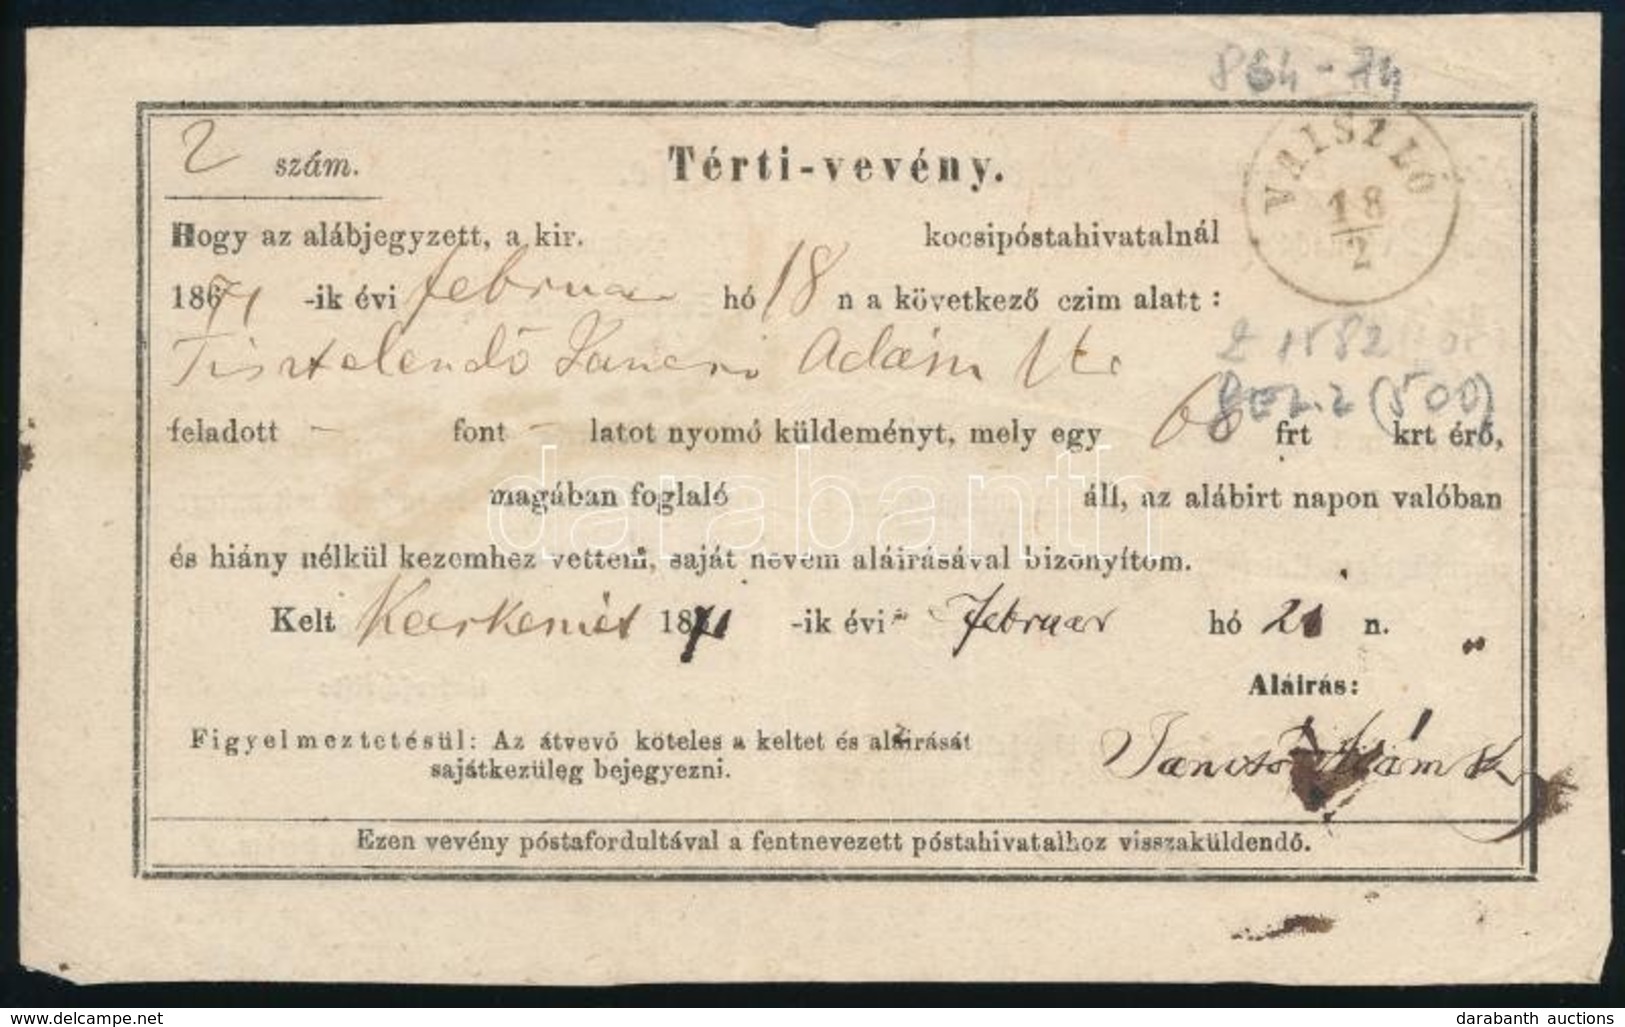 864-74
2 szám.
Térti-vevény.
VAISZLÓ
18/2
Hogy az alábjegyzett, a kir. kocsipóstahivatalnál
1871 -ik évi februar hó 18 n a következő czim alatt:
Tisztelendő Adám
2 1882
(500)
feladott - font - latot nyomó küldeményt, mely egy frt krt érő,
magában foglaló áll, az alábirt napon valóban
és hiány nélkül kezemhez vettem, saját nevem aláirásával bizonyítom.
Kelt 1871 -ik évi Februar hó 21 n.
Aláirás:
Figyelmeztetésül: Az átvevő köteles a keltet és aláirását
sajátkezüleg bejegyezni.
Adám
Ezen vevény póstafordultával a fentnevezett póstahivatalhoz visszaküldendő.
darabanth
www.delcampe.net
darabanth auctions